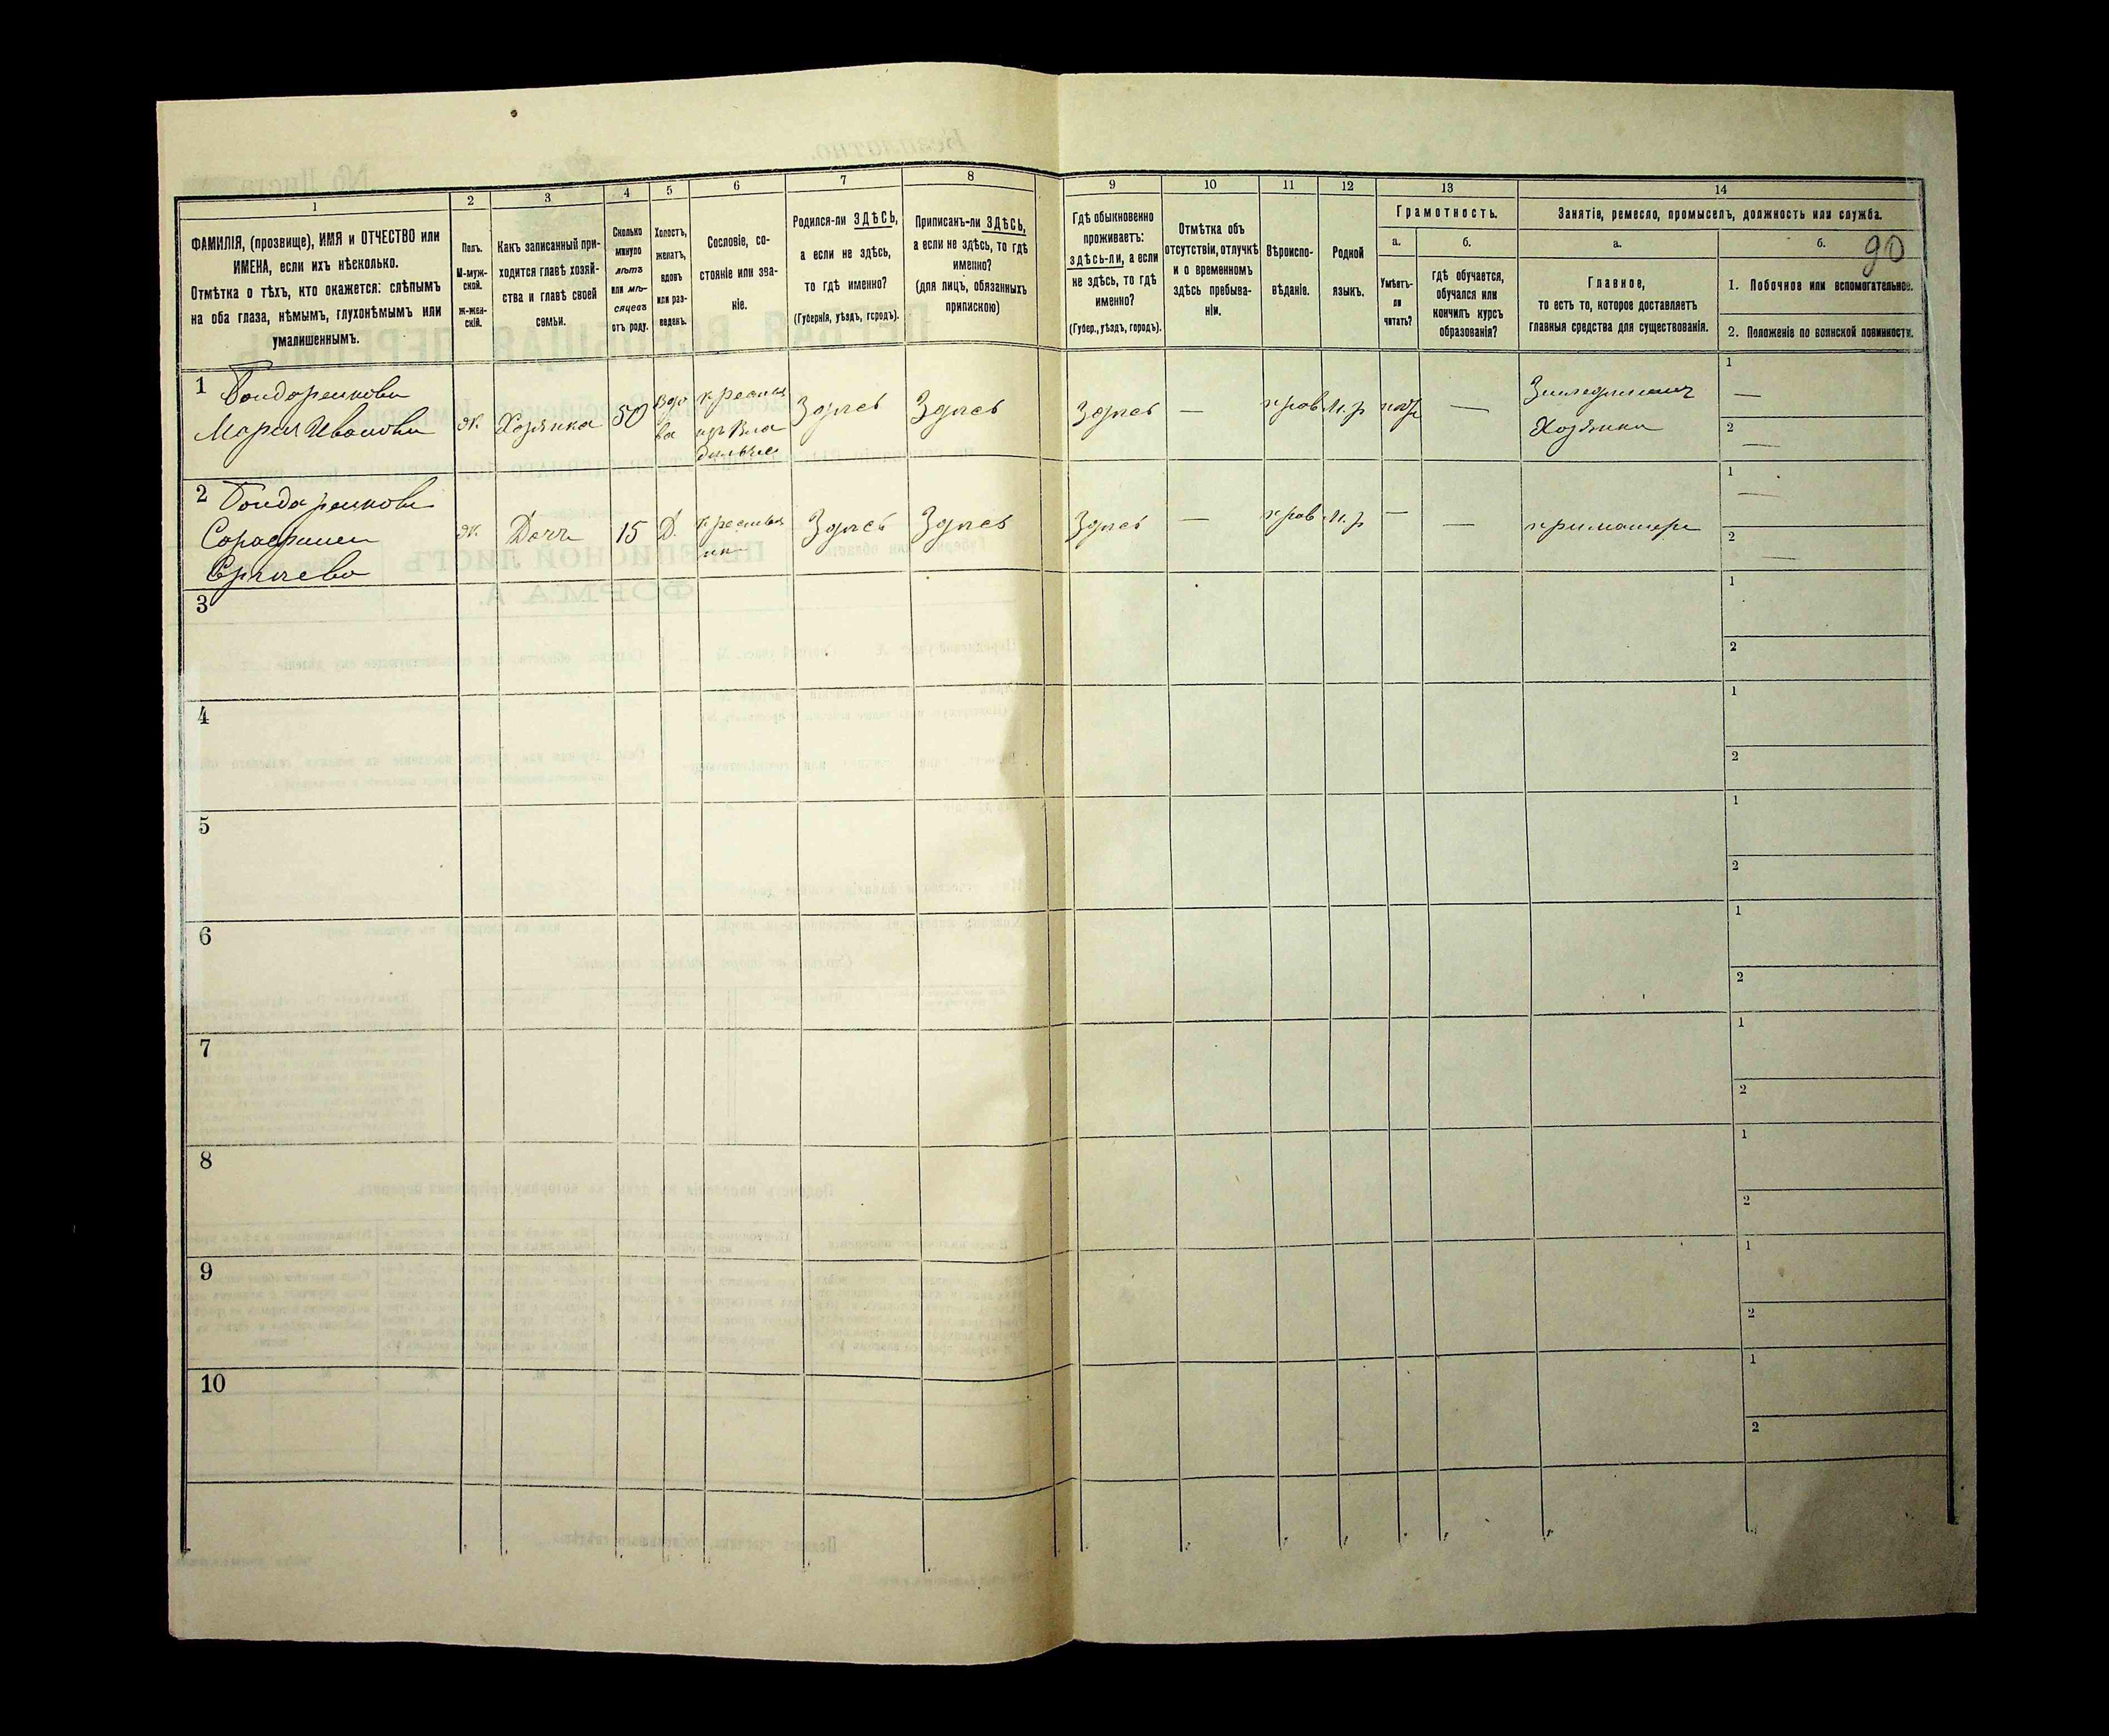 90
1 2 3 4 5 6 7 8 9 10 11 12 13 14
ФАМИЛІЯ, (прозвище), ИМЯ и ОТЧЕСТВО или
ИМЕНА, если ихъ нѣсколько.
Отмѣтка о тѣхъ, кто окажется: слѣпымъ
на оба глаза, нѣмымъ, глухонѣмымъ или
умалишеннымъ.
Полъ.
М-муж-
ской.
Ж-жен-
скій.
Какъ записанный при-
ходится главѣ хозяй-
ства и главѣ своей
семьи.
Сколько
минуло
лѣтъ
или мѣ-
сяцевъ
отъ роду.
Холостъ,
женатъ,
вдовъ
или раз-
веденъ.
Сословіе, со-
стояніе или зва-
ніе.
Родился-ли ЗДѢСЬ,
а если не здѣсь,
то гдѣ именно?
(Губернія, уѣздъ, городъ).
Приписанъ-ли ЗДѢСЬ,
а если не здѣсь, то гдѣ
именно?
(для лицъ, обязанныхъ
припискою)
Гдѣ обыкновенно
проживаетъ:
здѣсь-ли, а если
не здѣсь, то гдѣ
именно?
(Губер., уѣздъ, городъ).
Отмѣтка объ
отсутствіи, отлучкѣ
и о временномъ
здѣсь пребыва-
ніи.
Вѣроиспо-
вѣданіе.
Родной
языкъ.
Грамотность.
а.
Умѣетъ-
ли
читать?
б.
гдѣ обучается,
обучался или
кончилъ курсъ
образованія?
Занятіе, ремесло, промыселъ, должность или служба.
а.
Главное,
то есть то, которое доставляетъ
главныя средства для существованія.
б.
1. Побочное или вспомогательное.
2. Положеніе по воинской повинности.
1 Бондаренкова
Марья Ивановна
Ж.
Хозяйка
50
Вдо
ва
Крестьян
изъ Вла
дѣльче
Здѣсь
Здѣсь
Здѣсь
—
прав
М. р
—
Земледѣлецъ
Хозяйка
1
—
2
—
2 Бондаренкова
Ж.
Дочь
15
Д.
Крестьян
Здѣсь
Здѣсь
Здѣсь
—
прав
М. р
—
—
при матери
1
—
2
—
3
1
2
4
1
2
5
1
2
6
1
2
7
1
2
8
1
2
9
1
2
10
1
2